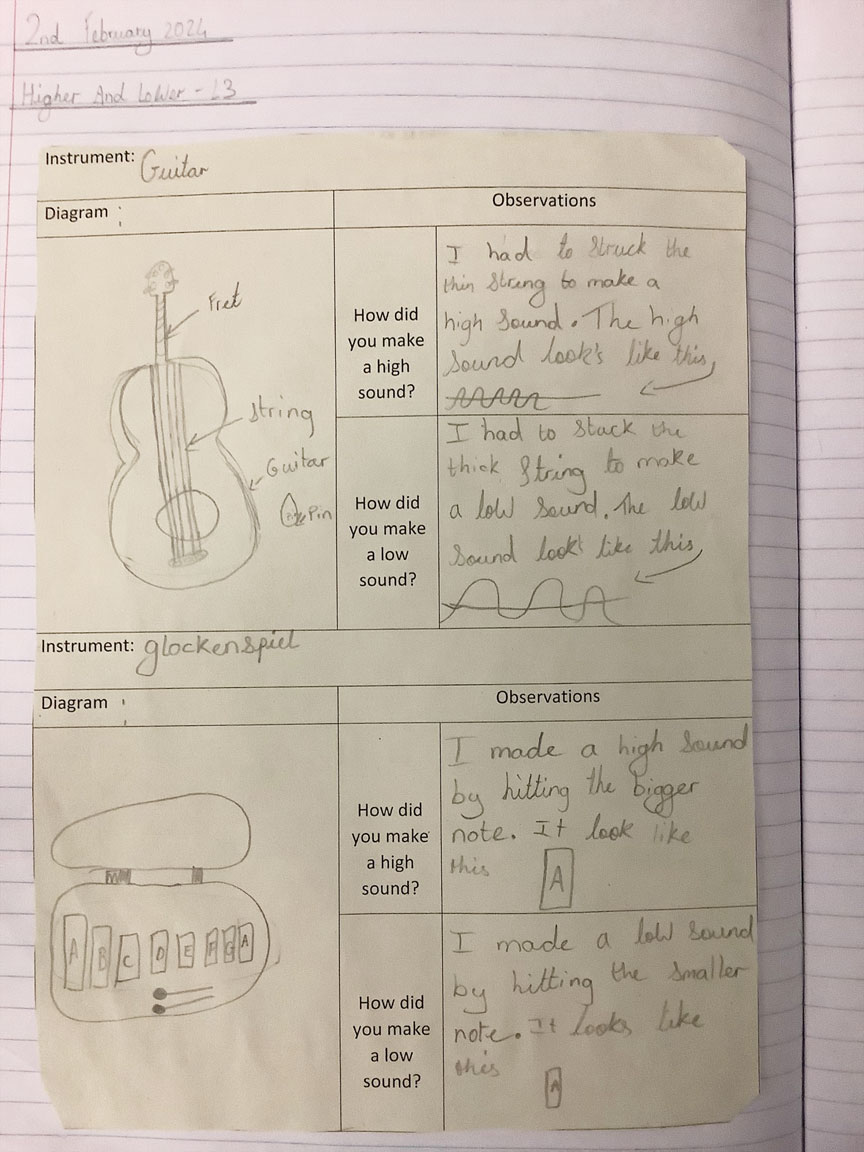 2nd February 2024
Higher And Lower - L3
Instrument: Guitar
Diagram :
Observations
Fret
String
Guitar
Pin
How did
you make
a high
sound?
I had to struck the
thin string to make a
high sound. The high
sound look's like this,
How did
you make
a low
sound?
I had to stuck the
thick string to make
a low sound. The low
sound look's like this,
Instrument: glockenspiel
Diagram :
Observations
A B C D E F G A
How did
you make
a high
sound?
I made a high sound
by hitting the bigger
note. It look like
this A
How did
you make
a low
sound?
I made a low sound
by hitting the smaller
note. It looks like
this A